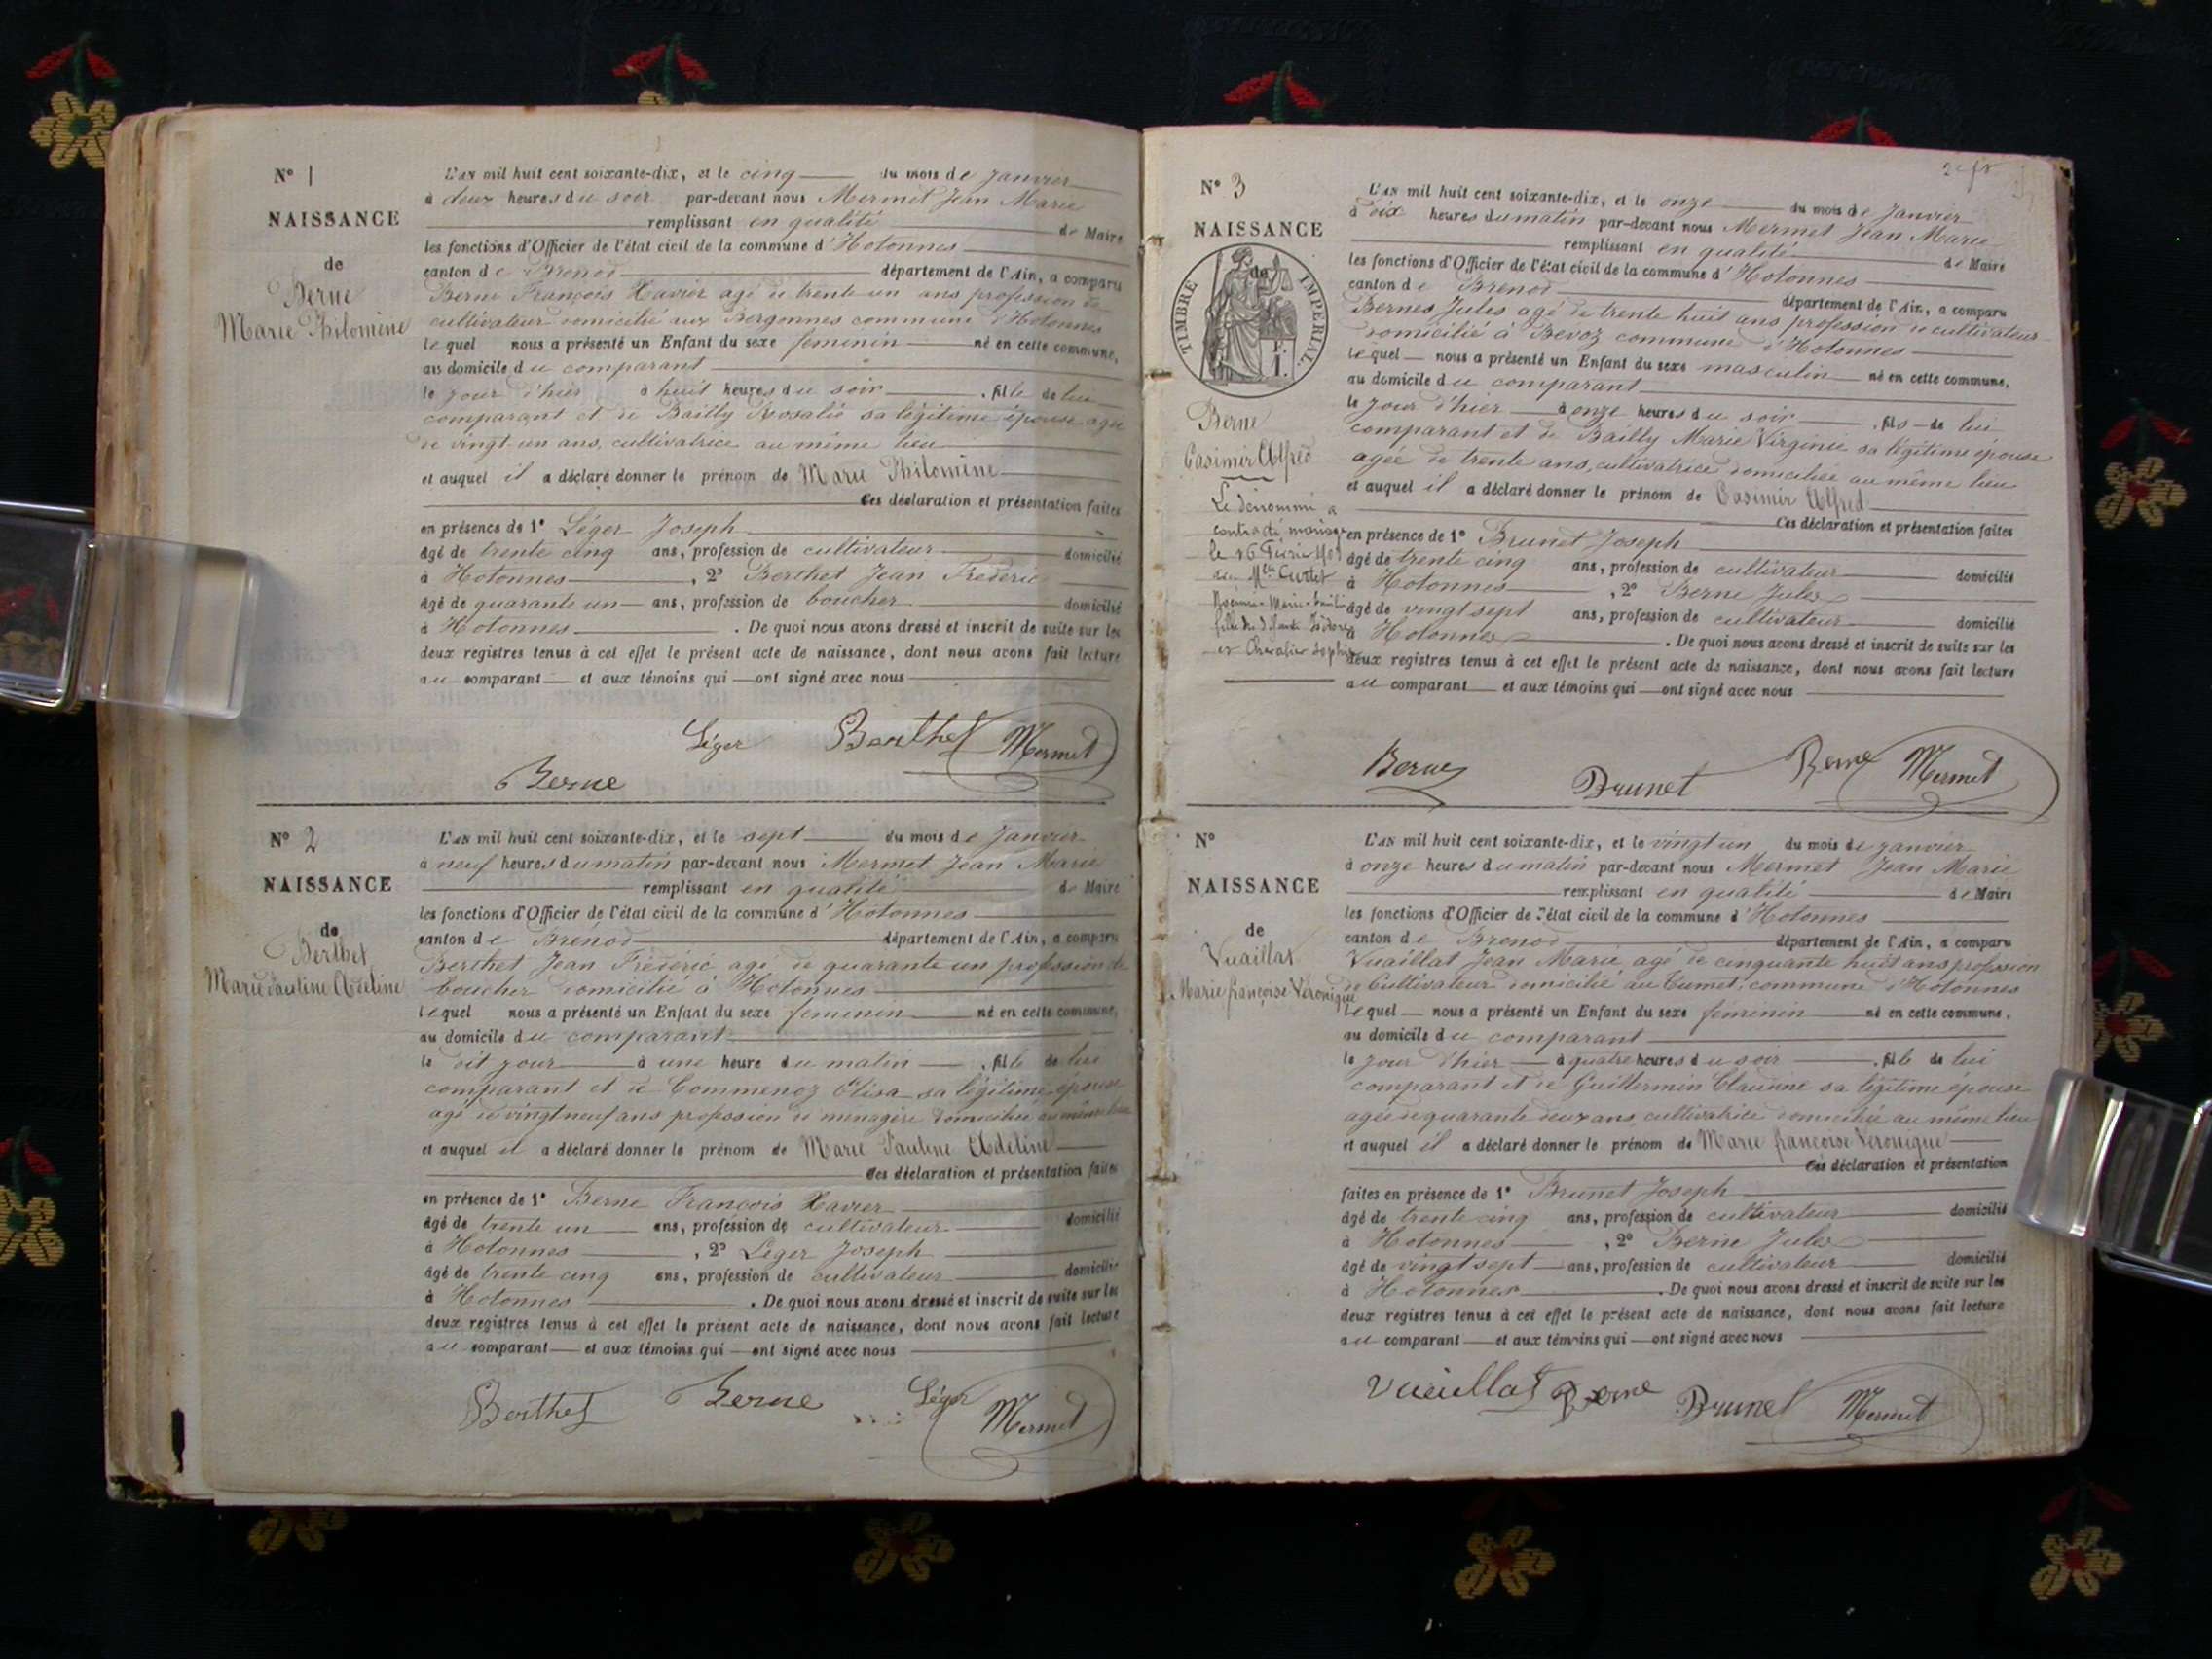 N° 1
NAISSANCE
de
Berne
Marie Philomine
L'an mil huit cent soixante-dix, et le cinq du mois de Janvier
à deux heures du soir par-devant nous Mermet Jean Marie
remplissant en qualité de Maire
les fonctions d'Officier de l'état civil de la commune d'Hotonnes
canton de Brenod département de l'Ain, a comparu
Berne François Xavier agé de trente un ans profession de
cultivateur domicilié aux Bergonnes commune d'Hotonnes
lequel nous a présenté un Enfant du sexe feminin né en cette commune,
au domicile du comparant
le jour d'hier à huit heures du soir, fille de lui
comparant et de Bailly Rosalie sa légitime épouse agée
de vingt un ans, cultivatrice au même lieu
et auquel il a déclaré donner le prénom de Marie Philomine
Ces déclaration et présentation faites
en présence de 1° Léger Joseph
âgé de trente cinq ans, profession de cultivateur domicilié
à Hotonnes, 2° Berthet Jean Frederic
âgé de quarante un ans, profession de boucher domicilié
à Hotonnes. De quoi nous avons dressé et inscrit de suite sur les
deux registres tenus à cet effet le présent acte de naissance, dont nous avons fait lecture
au comparant et aux témoins qui ont signé avec nous
Léger Berthet Mermet
Berne
N° 2
NAISSANCE
de
Berthet
Marie Pauline Adeline
L'an mil huit cent soixante-dix, et le sept du mois de Janvier
à neuf heures du matin par-devant nous Mermet Jean Marie
remplissant en qualité de Maire
les fonctions d'Officier de l'état civil de la commune d'Hotonnes
canton de Brénod département de l'Ain, a comparu
Berthet Jean Fréderic agé de quarante un profession de
boucher domicilié à Hotonnes
lequel nous a présenté un Enfant du sexe feminin né en cette commune,
au domicile du comparant
le dit jour à une heure du matin, fille de lui
comparant et de Commenoz Elisa sa légitime épouse
agé de vingt neuf ans profession de menagère domiciliée au même lieu
et auquel il a déclaré donner le prénom de Marie Pauline Adeline
Ces déclaration et présentation faites
en présence de 1° Berne François Xavier
âgé de trente un ans, profession de cultivateur domicilié
à Hotonnes, 2° Leger Joseph
âgé de trente cinq ans, profession de cultivateur domicilié
à Hotonnes. De quoi nous avons dressé et inscrit de suite sur les
deux registres tenus à cet effet le présent acte de naissance, dont nous avons fait lecture
au comparant et aux témoins qui ont signé avec nous
Berthet Berne Léger Mermet
N° 3
NAISSANCE
de
TIMBRE IMPERIAL
Berne
Casimir Alfred
Le dénommé a
contracté mariage
le 16 Février
Mlle Curtet
Chevalier Sophie
L'an mil huit cent soixante-dix, et le onze du mois de Janvier
à dix heures du matin par-devant nous Mermet Jean Marie
remplissant en qualité de Maire
les fonctions d'Officier de l'état civil de la commune d'Hotonnes
canton de Brenod département de l'Ain, a comparu
Bernes Jules agé de trente huit ans profession de cultivateur
domicilié à Bevoz commune d'Hotonnes
lequel nous a présenté un Enfant du sexe masculin né en cette commune,
au domicile du comparant
le jour d'hier à onze heures du soir, fils de lui
comparant et de Bailly Marie Virginie sa légitime épouse
agée de trente ans, cultivatrice domiciliée au même lieu
et auquel il a déclaré donner le prénom de Casimir Alfred
Ces déclaration et présentation faites
en présence de 1° Brunet Joseph
âgé de trente cinq ans, profession de cultivateur domicilié
à Hotonnes, 2° Berne Jules
âgé de vingt sept ans, profession de cultivateur domicilié
à Hotonnes. De quoi nous avons dressé et inscrit de suite sur les
deux registres tenus à cet effet le présent acte de naissance, dont nous avons fait lecture
au comparant et aux témoins qui ont signé avec nous
Berne Brunet Berne Mermet
N°
NAISSANCE
de
Vuaillat
Marie françoise Véronique
L'an mil huit cent soixante-dix, et le vingt un du mois de Janvier
à onze heures du matin par-devant nous Mermet Jean Marie
remplissant en qualité de Maire
les fonctions d'Officier de l'état civil de la commune d'Hotonnes
canton de Brenod département de l'Ain, a comparu
Vuaillat Jean Marie agé de cinquante huit ans profession
de Cultivateur domicilié au Tumet, commune d'Hotonnes
lequel nous a présenté un Enfant du sexe féminin né en cette commune,
au domicile du comparant
le jour d'hier à quatre heures du soir, fille de lui
comparant et de Guillermin Claudine sa légitime épouse
agée de quarante deux ans, cultivatrice domiciliée au même lieu
et auquel il a déclaré donner le prénom de Marie françoise Véronique
Ces déclaration et présentation
faites en présence de 1° Brunet Joseph
âgé de trente cinq ans, profession de cultivateur domicilié
à Hotonnes, 2° Berne Jules
âgé de vingt sept ans, profession de cultivateur domicilié
à Hotonnes. De quoi nous avons dressé et inscrit de suite sur les
deux registres tenus à cet effet le présent acte de naissance, dont nous avons fait lecture
au comparant et aux témoins qui ont signé avec nous
Vuaillat Berne Brunet Mermet